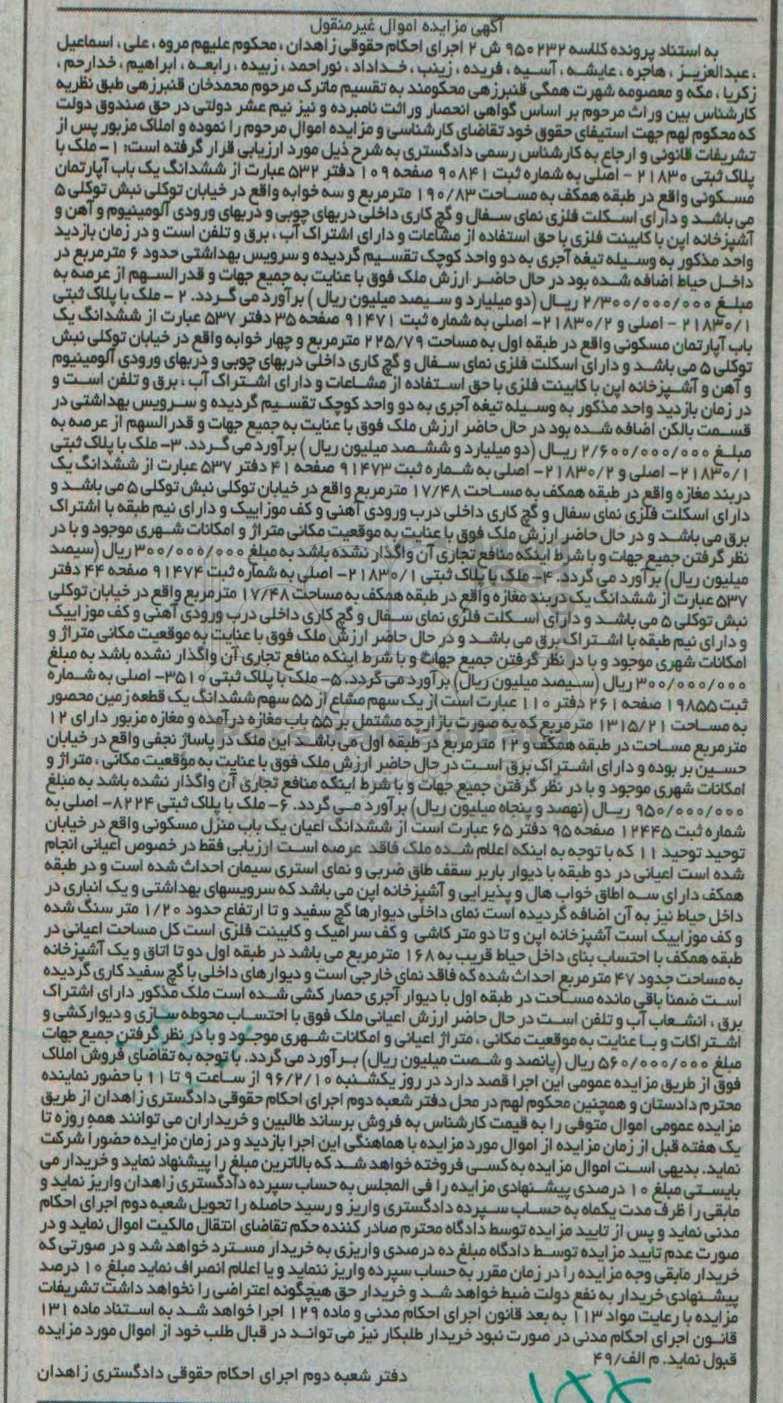 آگهی مزایده اموال غیرمنقول
به استناد پرونده کلاسه ۹۵۰۲۳۲ ش ۲ اجرای احکام حقوقی زاهدان ، محکوم علیهم مروه ، علی ، اسماعیل
، عبدالعزیز ، هاجره ، عایشه ، آسیه ، فریده ، زینب ، خداداد ، نوراحمد ، زبیده ، رابعه ، ابراهیم ، خدارحم ،
زکریا ، مکه و معصومه شهرت همگی قنبرزهی محکومند به تقسیم ماترک مرحوم محمدخان قنبرزهی طبق نظریه
کارشناس بین وراث مرحوم بر اساس گواهی انحصار وراثت نامبرده و نیز نیم عشر دولتی در حق صندوق دولت
که محکوم لهم جهت استیفای حقوق خود تقاضای کارشناسی و مزایده اموال مرحوم را نموده و املاک مزبور پس از
تشریفات قانونی و ارجاع به کارشناس رسمی دادگستری به شرح ذیل مورد ارزیابی قرار گرفته است: ۱- ملک با
پلاک ثبتی ۲۱۸۳۰ - اصلی به شماره ثبت ۹۰۸۴۱ صفحه ۱۰۹ دفتر ۵۳۲ عبارت از ششدانگ یک باب آپارتمان
مسکونی واقع در طبقه همکف به مساحت ۱۹۰/۸۳ مترمربع و سه خوابه واقع در خیابان توکلی نبش توکلی ۵
می باشد و دارای اسکلت فلزی نمای سفال و گچ کاری داخلی دربهای چوبی و دربهای ورودی آلومینیوم و آهن و
آشپزخانه اپن با کابینت فلزی با حق استفاده از مشاعات و دارای اشتراک آب ، برق و تلفن است و در زمان بازدید
واحد مذکور به وسیله تیغه آجری به دو واحد کوچک تقسیم گردیده و سرویس بهداشتی حدود ۶ مترمربع در
داخل حیاط اضافه شده بود در حال حاضر ارزش ملک فوق با عنایت به جمیع جهات و قدرالسهم از عرصه به
مبلغ ۲/۳۰۰/۰۰۰/۰۰۰ ریال (دو میلیارد و سیصد میلیون ریال ) برآورد می گردد. ۲ - ملک با پلاک ثبتی
۲۱۸۳۰/۱ - اصلی و ۲۱۸۳۰/۲- اصلی به شماره ثبت ۹۱۴۷۱ صفحه ۳۵ دفتر ۵۳۷ عبارت از ششدانگ یک
باب آپارتمان مسکونی واقع در طبقه اول به مساحت ۲۲۵/۷۹ مترمربع و چهار خوابه واقع در خیابان توکلی نبش
توکلی ۵ می باشد و دارای اسکلت فلزی نمای سفال و گچ کاری داخلی دربهای چوبی و دربهای ورودی آلومینیوم
و آهن و آشپزخانه اپن با کابینت فلزی با حق استفاده از مشاعات و دارای اشتراک آب ، برق و تلفن است و
در زمان بازدید واحد مذکور به وسیله تیغه آجری به دو واحد کوچک تقسیم گردیده و سرویس بهداشتی در
قسمت بالکن اضافه شده بود در حال حاضر ارزش ملک فوق با عنایت به جمیع جهات و قدرالسهم از عرصه به
مبلغ ۲/۶۰۰/۰۰۰/۰۰۰ ریال (دو میلیارد و ششصد میلیون ریال ) برآورد می گردد. ۳- ملک با پلاک ثبتی
۲۱۸۳۰/۱- اصلی و ۲۱۸۳۰/۲- اصلی به شماره ثبت ۹۱۴۷۳ صفحه ۴۱ دفتر ۵۳۷ عبارت از ششدانگ یک
دربند مغازه واقع در طبقه همکف به مساحت ۱۷/۴۸ مترمربع واقع در خیابان توکلی نبش توکلی ۵ می باشد و
دارای اسکلت فلزی نمای سفال و گچ کاری داخلی درب ورودی آهنی و کف موزاییک و دارای نیم طبقه با اشتراک
برق می باشد و در حال حاضر ارزش ملک فوق با عنایت به موقعیت مکانی متراژ و امکانات شهری موجود و با در
نظر گرفتن جمیع جهات و با شرط اینکه منافع تجاری آن واگذار نشده باشد به مبلغ ۳۰۰/۰۰۰/۰۰۰ ریال (سیصد
میلیون ریال) برآورد می گردد. ۴- ملک با پلاک ثبتی ۲۱۸۳۰/۱- اصلی به شماره ثبت ۹۱۴۷۴ صفحه ۴۴ دفتر
۵۳۷ عبارت از ششدانگ یک دربند مغازه واقع در طبقه همکف به مساحت ۱۷/۴۸ مترمربع واقع در خیابان توکلی
نبش توکلی ۵ می باشد و دارای اسکلت فلزی نمای سفال و گچ کاری داخلی درب ورودی آهنی و کف موزاییک
و دارای نیم طبقه با اشتراک برق می باشد و در حال حاضر ارزش ملک فوق با عنایت به موقعیت مکانی متراژ و
امکانات شهری موجود و با در نظر گرفتن جمیع جهات و با شرط اینکه منافع تجاری آن واگذار نشده باشد به مبلغ
۳۰۰/۰۰۰/۰۰۰ ریال (سیصد میلیون ریال) برآورد می گردد. ۵- ملک با پلاک ثبتی ۳۵۱۰- اصلی به شماره
ثبت ۱۹۸۵۵ صفحه ۲۶۱ دفتر ۱۱۰ عبارت است از یک سهم مشاع از ۵۵ سهم ششدانگ یک قطعه زمین محصور
به مساحت ۱۳۱۵/۲۱ مترمربع که به صورت بازارچه مشتمل بر ۵۵ باب مغازه درآمده و مغازه مزبور دارای ۱۲
مترمربع مساحت در طبقه همکف و ۱۲ مترمربع در طبقه اول می باشد این ملک در پاساژ نجفی واقع در خیابان
حسین بر بوده و دارای اشتراک برق است در حال حاضر ارزش ملک فوق با عنایت به موقعیت مکانی ، متراژ و
امکانات شهری موجود و با در نظر گرفتن جمیع جهات و با شرط اینکه منافع تجاری آن واگذار نشده باشد به مبلغ
۹۵۰/۰۰۰/۰۰۰ ریال (نهصد و پنجاه میلیون ریال) برآورد می گردد. ۶- ملک با پلاک ثبتی ۸۲۲۴- اصلی به
شماره ثبت ۱۲۴۴۵ صفحه ۹۵ دفتر ۶۵ عبارت است از ششدانگ اعیان یک باب منزل مسکونی واقع در خیابان
توحید توحید ۱۱ که با توجه به اینکه اعلام شده ملک فاقد عرصه است ارزیابی فقط در خصوص اعیانی انجام
شده است اعیانی در دو طبقه با دیوار باربر سقف طاق ضربی و نمای استری سیمان احداث شده است و در طبقه
همکف دارای سه اطاق خواب هال و پذیرایی و آشپزخانه اپن می باشد که سرویسهای بهداشتی و یک انباری در
داخل حیاط نیز به آن اضافه گردیده است نمای داخلی دیوارها گچ سفید و تا ارتفاع حدود ۱/۲۰ متر سنگ شده
و کف موزاییک است آشپزخانه اپن و تا دو متر کاشی و کف سرامیک و کابینت فلزی است کل مساحت اعیانی در
طبقه همکف با احتساب بنای داخل حیاط قریب به ۱۶۸ مترمربع می باشد در طبقه اول دو تا اتاق و یک آشپزخانه
به مساحت حدود ۴۷ مترمربع احداث شده که فاقد نمای خارجی است و دیوارهای داخلی با گچ سفید کاری گردیده
است ضمنا باقی مانده مساحت در طبقه اول با دیوار آجری حصار کشی شده است ملک مذکور دارای اشتراک
برق ، انشعاب آب و تلفن است در حال حاضر ارزش اعیانی ملک فوق با احتساب محوطه سازی و دیوارکشی و
اشتراکات و با عنایت به موقعیت مکانی ، متراژ اعیانی و امکانات شهری موجود و با در نظر گرفتن جمیع جهات
مبلغ ۵۶۰/۰۰۰/۰۰۰ ریال (پانصد و شصت میلیون ریال) برآورد می گردد. با توجه به تقاضای فروش املاک
فوق از طریق مزایده عمومی این اجرا قصد دارد در روز یکشنبه ۹۶/۲/۱۰ از ساعت ۹ تا ۱۱ با حضور نماینده
محترم دادستان و همچنین محکوم لهم در محل دفتر شعبه دوم اجرای احکام حقوقی دادگستری زاهدان از طریق
مزایده عمومی اموال متوفی را به قیمت کارشناس به فروش برساند طالبین و خریداران می توانند همه روزه تا
یک هفته قبل از زمان مزایده از اموال مورد مزایده با هماهنگی این اجرا بازدید و در زمان مزایده حضورا شرکت
نماید. بدیهی است اموال مزایده به کسی فروخته خواهد شد که بالاترین مبلغ را پیشنهاد نماید و خریدار می
بایستی مبلغ ۱۰ درصدی پیشنهادی مزایده را فی المجلس به حساب سپرده دادگستری زاهدان واریز نماید و
مابقی را ظرف مدت یکماه به حساب سپرده دادگستری واریز و رسید حاصله را تحویل شعبه دوم اجرای احکام
مدنی نماید و پس از تایید مزایده توسط دادگاه محترم صادر کننده حکم تقاضای انتقال مالکیت اموال نماید و در
صورت عدم تایید مزایده توسط دادگاه مبلغ ده درصدی واریزی به خریدار مسترد خواهد شد و در صورتی که
خریدار مابقی وجه مزایده را در زمان مقرر به حساب سپرده واریز ننماید و یا اعلام انصراف نماید مبلغ ۱۰ درصد
پیشنهادی خریدار به نفع دولت ضبط خواهد شد و خریدار حق هیچگونه اعتراضی را نخواهد داشت تشریفات
مزایده با رعایت مواد ۱۱۳ به بعد قانون اجرای احکام مدنی و ماده ۱۲۹ اجرا خواهد شد به استناد ماده ۱۳۱
قانون اجرای احکام مدنی در صورت نبود خریدار طلبکار نیز می تواند در قبال طلب خود از اموال مورد مزایده
قبول نماید. م الف/۴۹
دفتر شعبه دوم اجرای احکام حقوقی دادگستری زاهدان